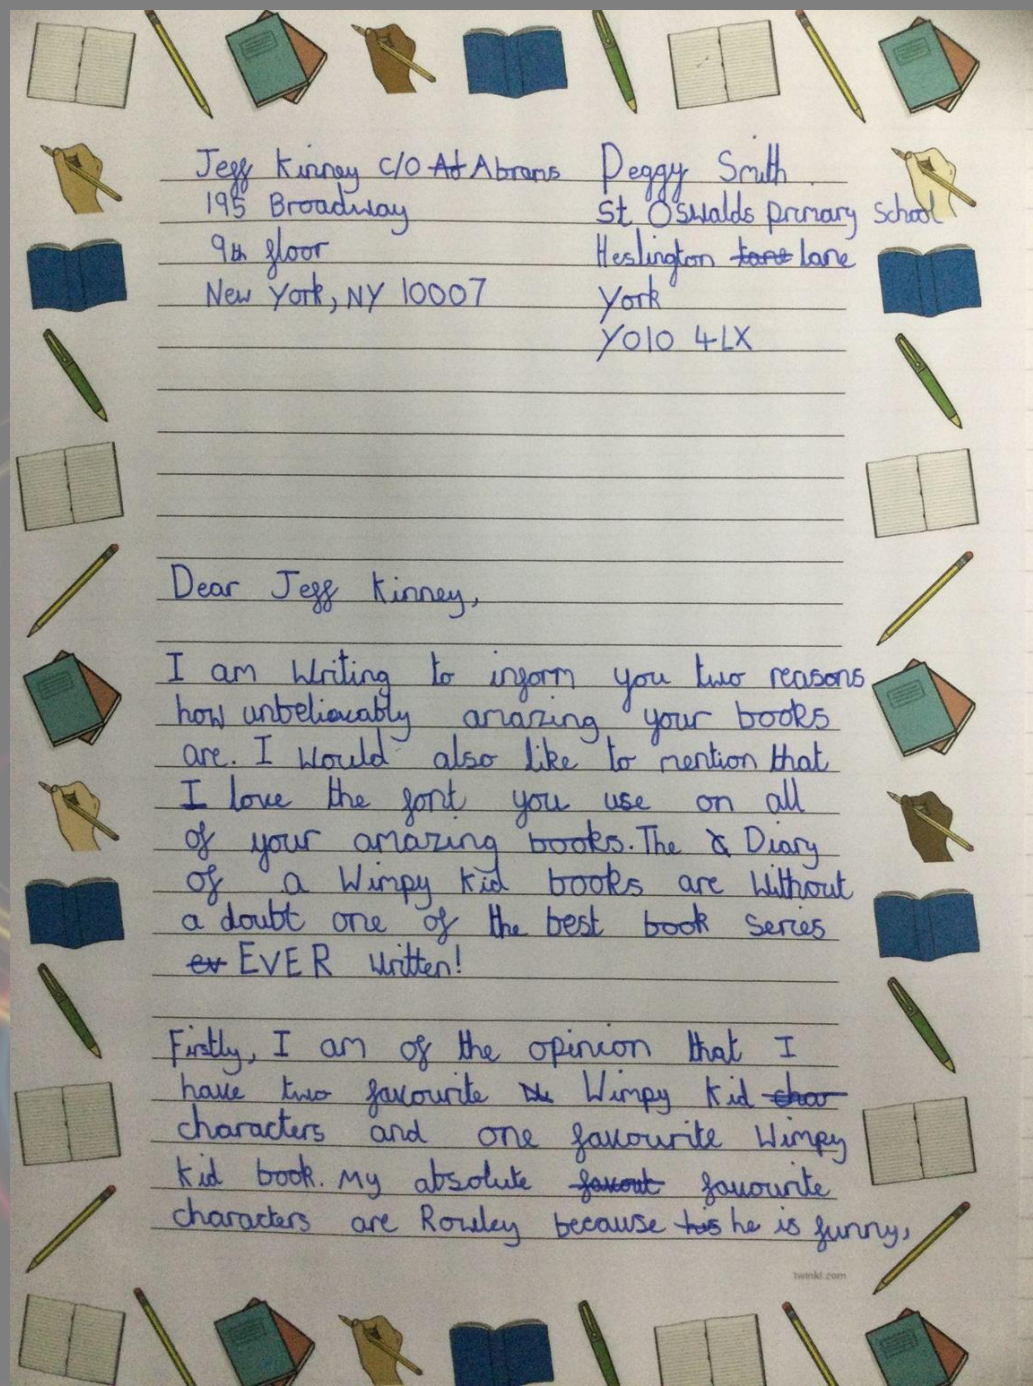 Jeff Kinney C/O At Abrams
195 Broadway
9th floor
New York, NY 10007
Peggy Smith
St Oswalds primary school
Heslington lane lane
York
YO10 4LX
Dear Jeff Kinney,
I am writing to inform you two reasons
how unbelievably amazing your books
are. I would also like to mention that
I love the font you use on all
of your amazing books. The Diary
of a Wimpy Kid books are without
a doubt one of the best book series
ev EVER written!
Firstly, I am of the opinion that I
have two favourite Wimpy Kid char
characters and one favourite Wimpy
Kid book. My absolute favout favourite
characters are Rowley because his he is funny,
twinkl.com